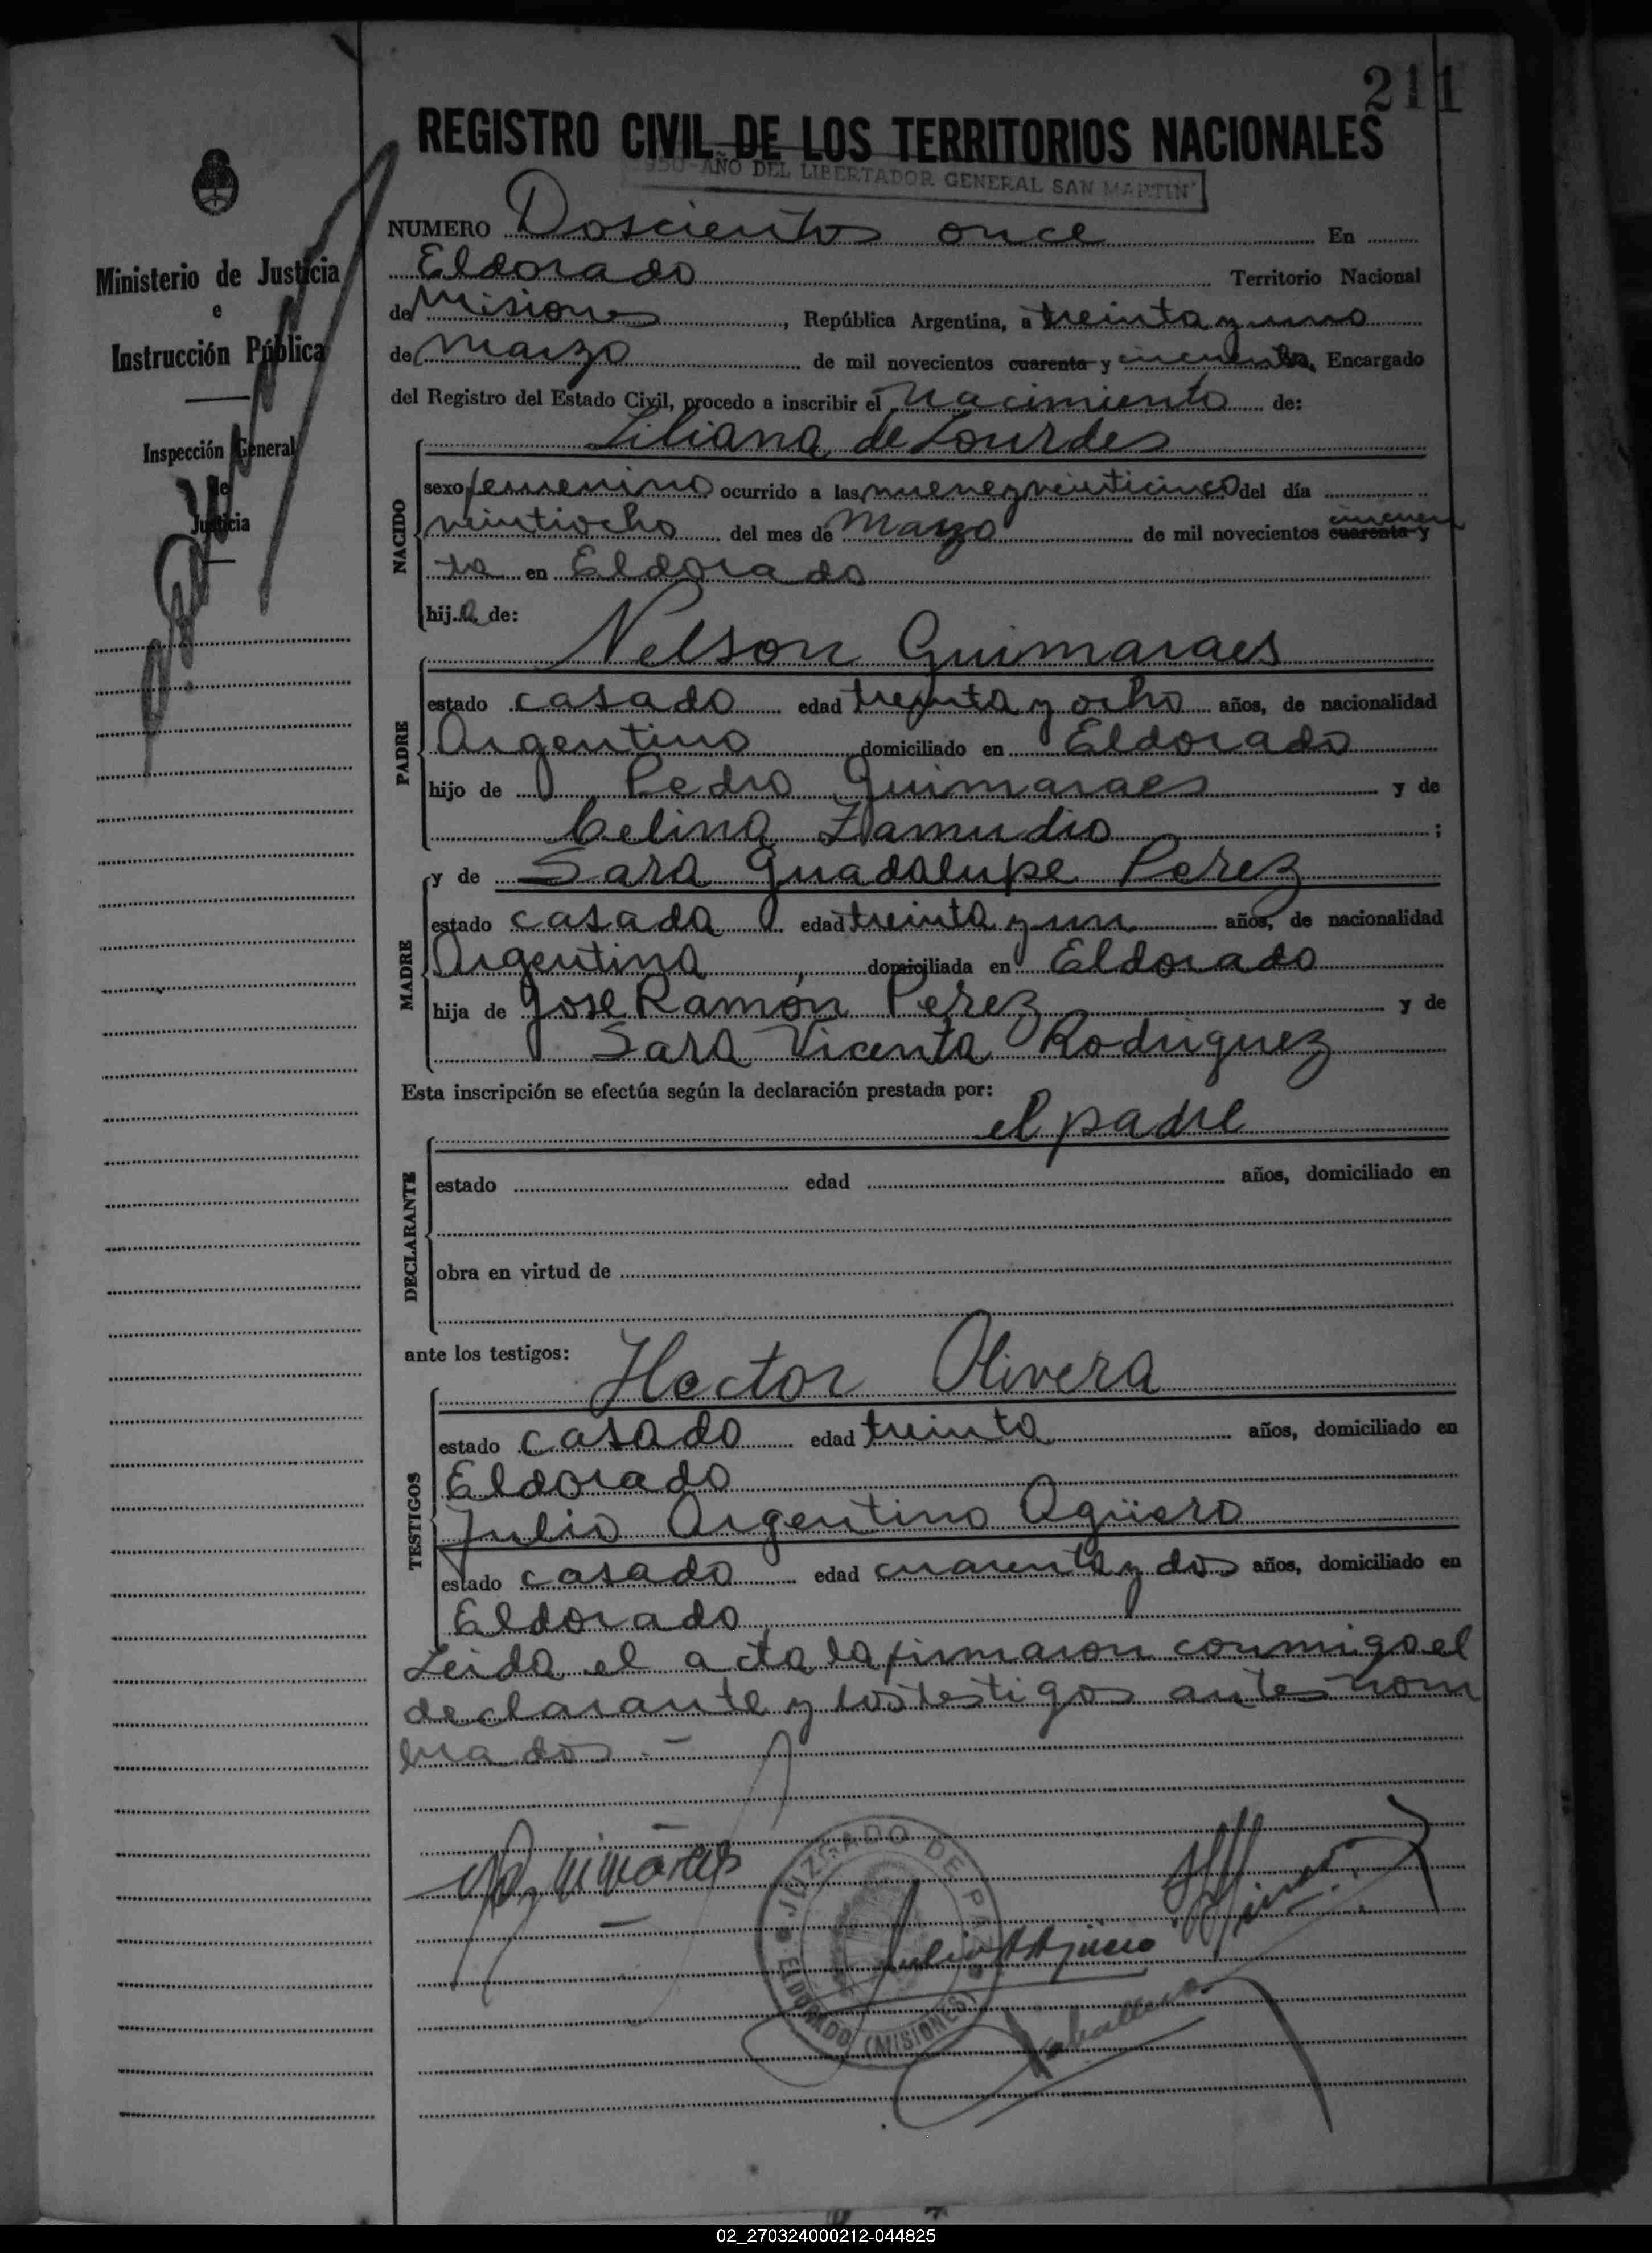 211
REGISTRO CIVIL DE LOS TERRITORIOS NACIONALES
950-AÑO DEL LIBERTADOR GENERAL SAN MARTIN"
Ministerio de Justicia
e
Instrucción Pública
Inspección General
de
Justicia
NUMERO Doscientos once En
Eldorado Territorio Nacional
de Misiones, República Argentina, a treinta y uno
de Marzo de mil novecientos cuarenta y cincuenta, Encargado
del Registro del Estado Civil, procedo a inscribir el Nacimiento de:
NACIDO
Liliana de Lourdes
sexo femenino ocurrido a las nueve y veinticinco del día
veintiocho del mes de Marzo de mil novecientos cuarenta y cincuen
ta en Eldorado
hija de:
PADRE
Nelson Guimaraes
estado casado edad treinta y ocho años, de nacionalidad
Argentino domiciliado en Eldorado
hijo de Pedro Guimaraes y de
Celina Zamudio ;
MADRE
y de Sara Guadalupe Perez
estado casada edad treinta y un años, de nacionalidad
Argentina, domiciliada en Eldorado
hija de Jose Ramón Perez y de
Sara Vicenta Rodriguez
Esta inscripción se efectúa según la declaración prestada por:
DECLARANTE
el padre
estado edad años, domiciliado en
obra en virtud de
ante los testigos:
TESTIGOS
Hector Olivera
estado casado edad treinta años, domiciliado en
Eldorado
Julio Argentino Agüero
estado casado edad cuarenta y dos años, domiciliado en
Eldorado
Leida el acta la firmaron conmigo el
declarante y los testigos antes nom
brados.-
JUZGADO DE PAZ
ELDORADO (MISIONES)
Julio A Agüero
02_270324000212-044825